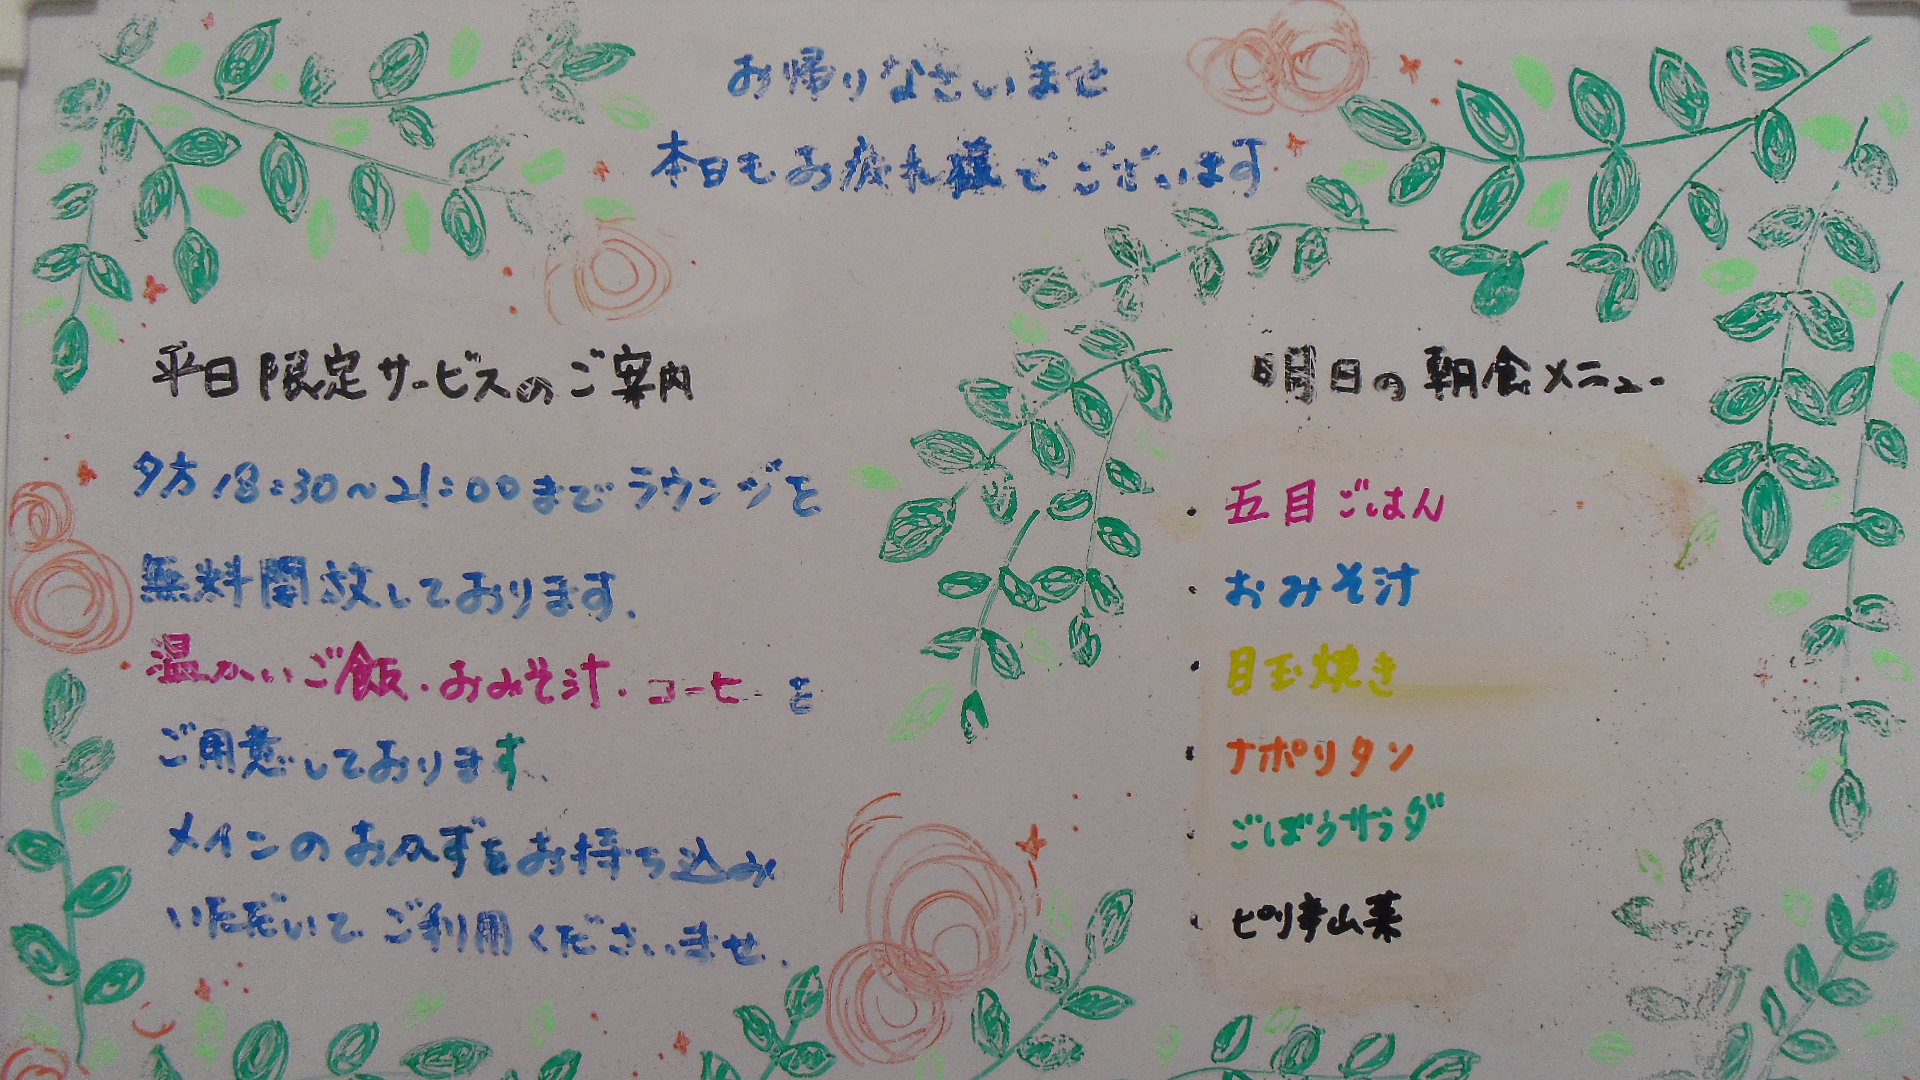 お帰りなさいませ
本日もお疲れ様でございます
平日限定サービスのご案内
夕方18:30～21:00までラウンジを
無料開放しております.
温かいご飯・おみそ汁・コーヒーを
ご用意しております、
メインのおかずをお持ち込み
いただいてご利用くださいませ.
明日の朝食メニュー
・五目ごはん
・おみそ汁
・目玉焼き
・ナポリタン
・ごぼうサラダ
・ピリ辛山菜